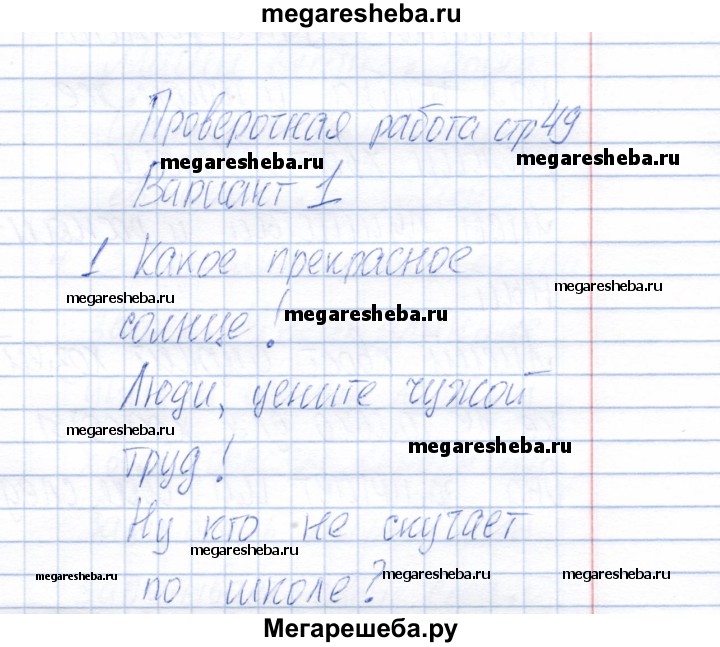 megaresheba.ru
Проверочная работа стр 49
megaresheba.ru
megaresheba.ru
Вариант 1
1 Какое прекрасное
megaresheba.ru
megaresheba.ru
солнце!
megaresheba.ru
Люди, цените чужой
megaresheba.ru
megaresheba.ru
труд!
Ну кто не скучает
megaresheba.ru
megaresheba.ru
по школе?
megaresheba.ru
megaresheba.ru
Мегарешеба.ру